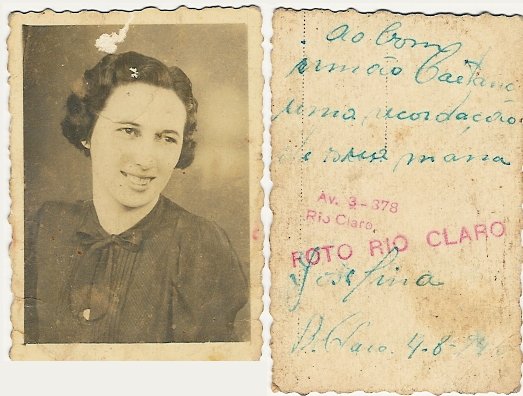 Ao bom
irmão Caetano
uma recordação
de sua mana
Av. 3-378
Rio Claro
FOTO RIO CLARO
Josefina
R. Claro 4-8-